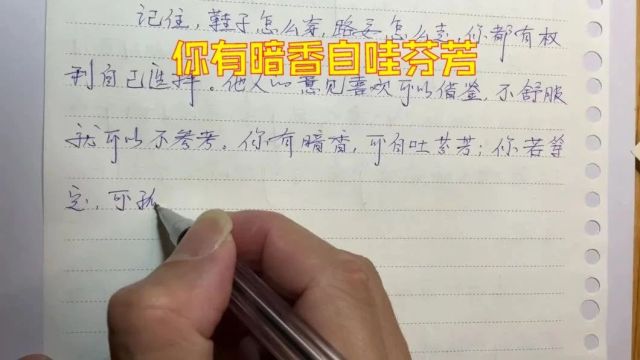 记住,鞋子怎么穿,路要怎么走,你都有权
你有暗香自哇芬芳
利自己选择。他人的意见喜欢可以借鉴,不舒服
就可以不参考。你有暗香,可自吐芬芳;你若笃
定,可孤